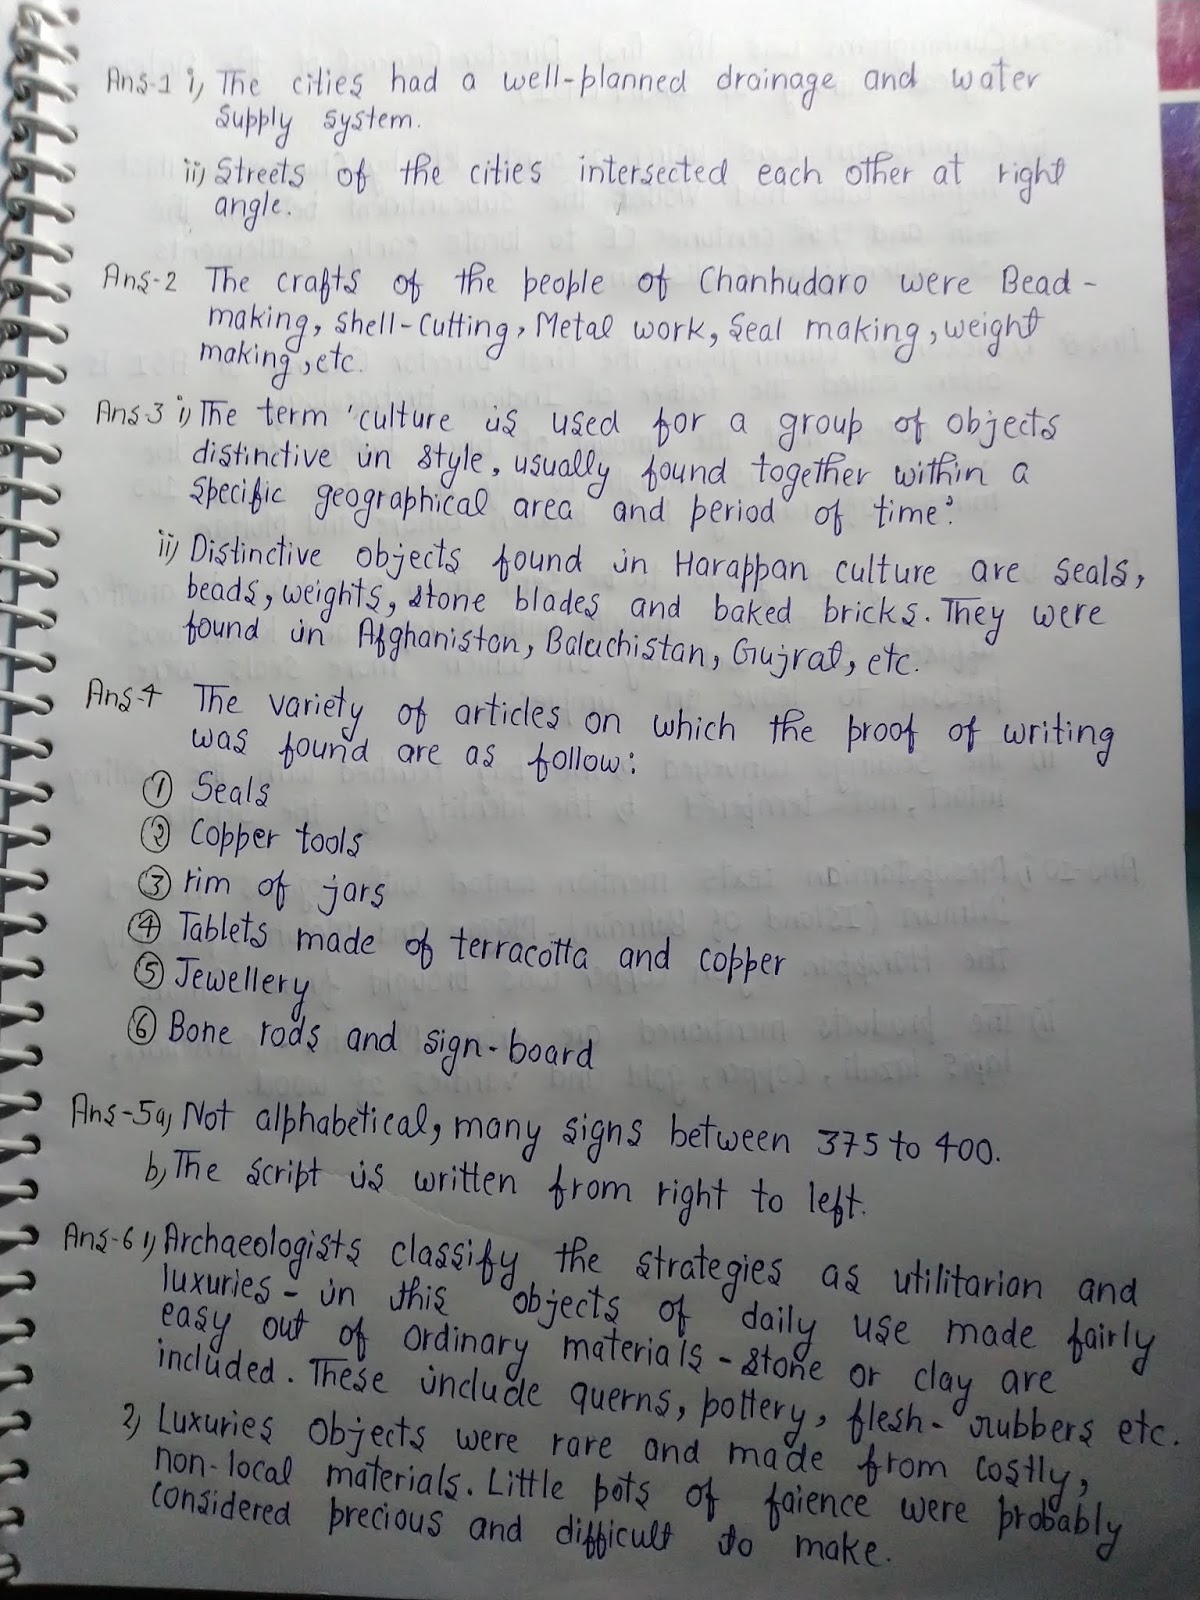 Ans-1 i) The cities had a well-planned drainage and water
supply system.
ii) Streets of the cities intersected each other at right
angle.
Ans-2 The crafts of the people of Chanhudaro were Bead-
making, Shell-Cutting, Metal work, Seal making, weight
making, etc.
Ans-3 i) The term 'culture is used for a group of objects
distinctive in style, usually found together within a
specific geographical area and period of time'.
ii) Distinctive objects found in Harappan culture are seals,
beads, weights, stone blades and baked bricks. They were
found in Afghanistan, Baluchistan, Gujrat, etc.
Ans-4 The variety of articles on which the proof of writing
was found are as follow:
① Seals
② Copper tools
③ rim of jars
④ Tablets made of terracotta and copper
⑤ Jewellery
⑥ Bone rods and sign-board
Ans-5 a) Not alphabetical, many signs between 375 to 400.
b) The script is written from right to left.
Ans-6 1) Archaeologists classify the strategies as utilitarian and
luxuries - in this objects of daily use made fairly
easy out of ordinary materials - stone or clay are
included. These include querns, pottery, flesh-rubbers etc.
2) Luxuries objects were rare and made from costly,
non-local materials. Little pots of faience were probably
considered precious and difficult to make.